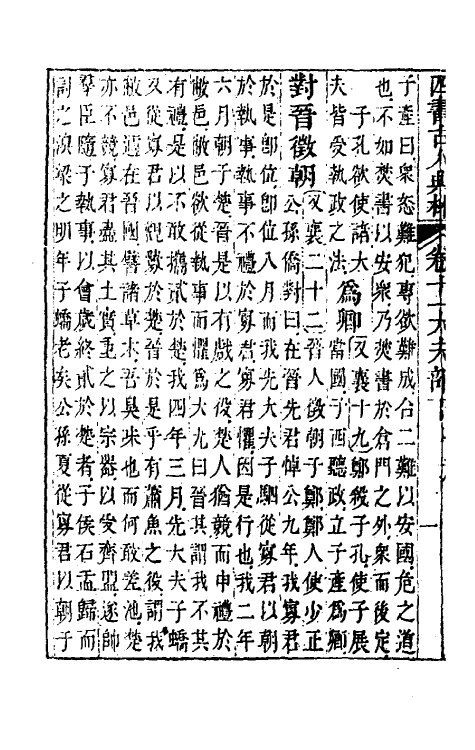 四書古人典林 卷十一大夫部
子產曰衆怒難犯專欲難成合二難以安國危之道
也不如焚書以安衆乃焚書於倉門之外衆而後定
子孔欲使諸大夫皆受執政之法 爲卿 又襄十九鄭殺子孔使子展
當國子西聽政立子產爲卿
對晉徵朝 又襄二十二晉人徵朝于鄭鄭人使少正
公孫僑對曰在晉先君悼公九年我寡君
於是卽位卽位八月而我先大夫子駟從寡君以朝
於執事執事不禮於寡君寡君懼因是行也我二年
六月朝于楚晉是以有戲之役楚人猶競而申禮於
敝邑敝邑欲從執事而懼爲大尤曰晉其謂我不共
有禮是以不敢攜貳於楚我四年三月先大夫子蟜
又從寡君以觀釁於楚晉於是乎有蕭魚之役謂我
敝邑邇在晉國譬諸草木吾臭味也而何敢差池楚
亦不競寡君盡其土實重之以宗器以受齊盟遂帥
羣臣隨于執事以會歲終貳於楚者子侯石盂歸而
討之溴梁之明年子蟜老矣公孫夏從寡君以朝于